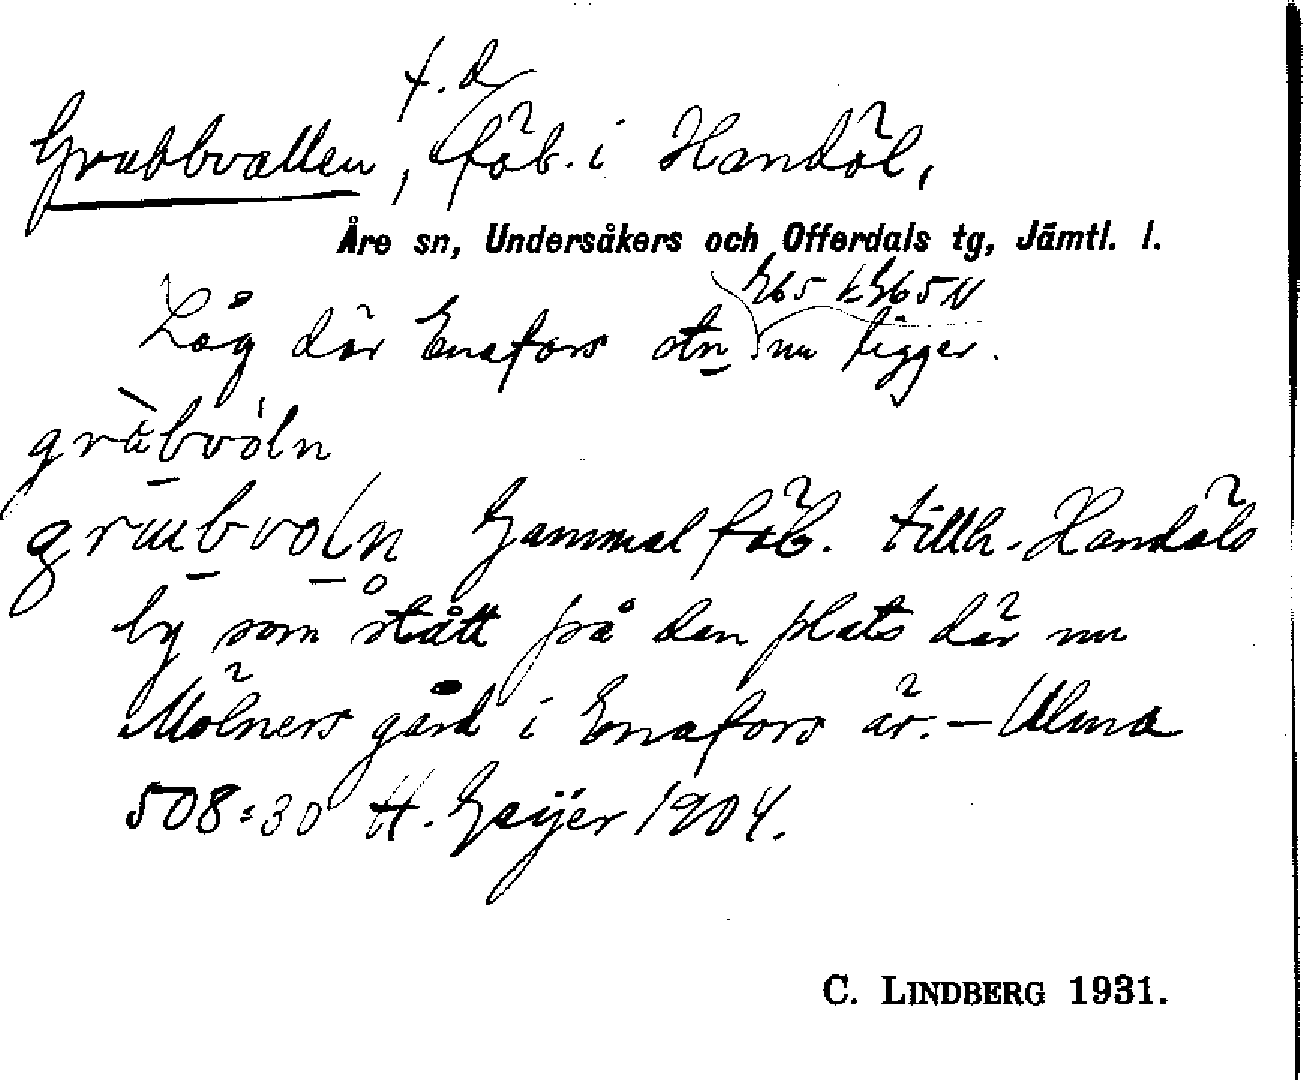 f.d.
Grubbvallen, fäb. i Handöl,
Åre sn, Undersåkers och Offerdals tg, Jämtl. l.
Låg där Enafors stn nu ligger.
grùbvòln
grubvoln Gammal fäb. tillh. Handöls
by som stått på den plats där nu
Mölners gård i Enafors är. – Ulma
508:30 H. Geijer 1904.
C. LINDBERG 1931.